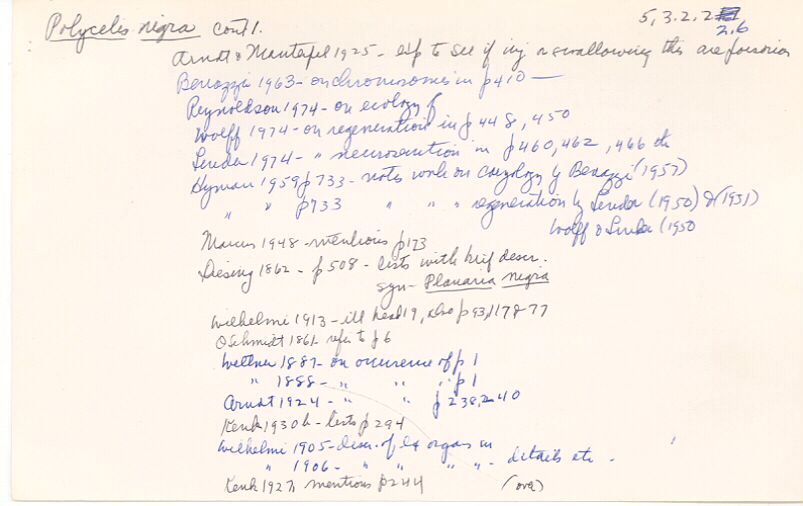 Polycelis nigra cont 1. 5, 3.2.2
2.6
Arndt & Manteufel 1925 - exp to see if inj or swallowing this are poisonous
Benazzi 1963 - on chromosomes in p 410 —
Reynoldson 1974 - on ecology of
Wolff 1974 - on regeneration in p 448, 450
Lender 1974 - " neurosecretion in p 460, 462, 466 etc
Hyman 1959 p 733 - notes work on cytology by Benazzi (1957)
" " p 733 " " " regeneration by Lender (1950) & (1951)
Wolff & Lender (1950
Marcus 1948 - mentions p 173
Diesing 1862 - p 508 - lists with brief descr.
syn - Planaria nigra
Wilhelmi 1913 - ill head 19, also p 93,
O Schmidt 1861 - refer to p 6
Weltner 1887 - on occurrence of p 1
" 1888 - " " " p 1
Arndt 1924 - " " p 238, 240
Kenk 1930 b - lists p 294
Wilhelmi 1905 - descr. of organs in
" 1906 - " " " " - details etc.
Kenk 1927, mentions p 244 (ova)